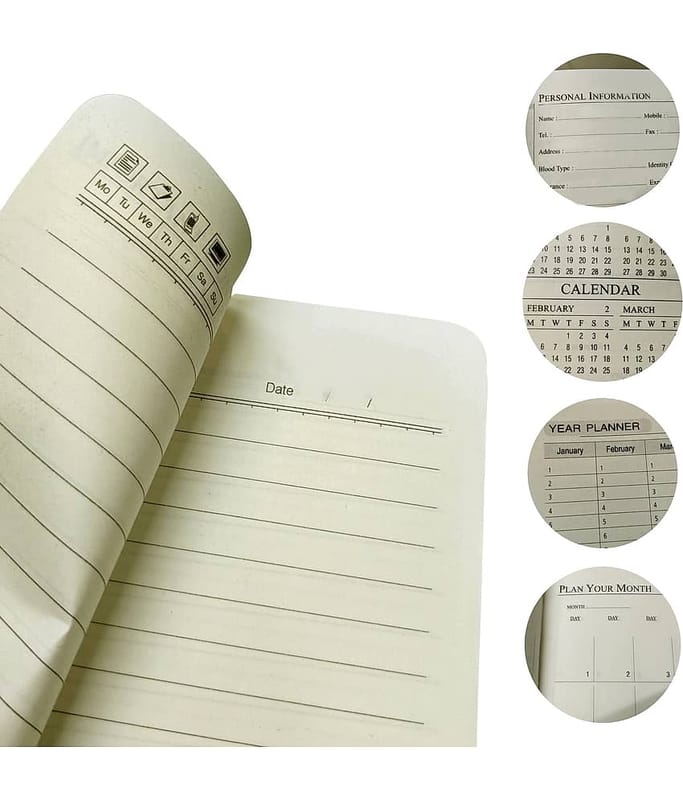 Mo Tu We Th Fr Sa Su
Date / /
PERSONAL INFORMATION
Name : Mobile :
Tel. : Fax :
Address :
Blood Type : Identity
Exp
1
4 5 6 7 8 6 7 8
10 11 12 13 14 15
17 18 19 20 21 22 20 21 22 23
23 24 25 26 27 28 29 27 28 29 30
CALENDAR
FEBRUARY 2 MARCH
M T W T F S S M T W T F
1 2 3 4
6 7 8 9 10 11 4 5 6 7
14 15 16 17 18 11 12 13 14
22 23 24 25 18 19 20
YEAR PLANNER
January February Mar
1 1 1
2 2 2
3 3 3
4 4 4
5 5 5
6 6
PLAN YOUR MONTH
MONTH
DAY. DAY. DAY.
1 2 3